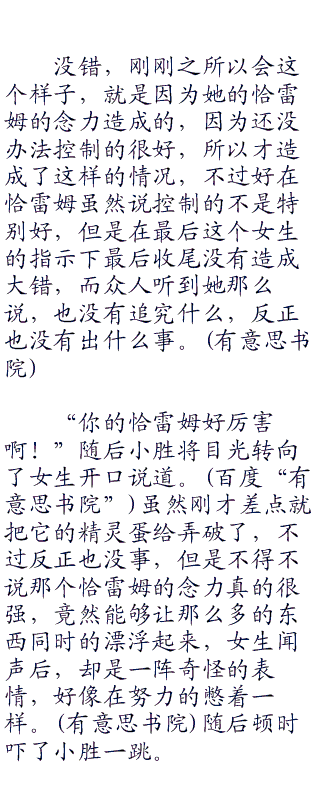 没错，刚刚之所以会这
个样子，就是因为她的恰雷
姆的念力造成的，因为还没
办法控制的很好，所以才造
成了这样的情况，不过好在
恰雷姆虽然说控制的不是特
别好，但是在最后这个女生
的指示下最后收尾没有造成
大错，而众人听到她那么
说，也没有追究什么，反正
也没有出什么事。(有意思书
院)
“你的恰雷姆好厉害
啊！”随后小胜将目光转向
了女生开口说道。(百度“有
意思书院”)虽然刚才差点就
把它的精灵蛋给弄破了，不
过反正也没事，但是不得不
说那个恰雷姆的念力真的很
强，竟然能够让那么多的东
西同时的漂浮起来，女生闻
声后，却是一阵奇怪的表
情，好像在努力的憋着一
样。(有意思书院)随后顿时
吓了小胜一跳。